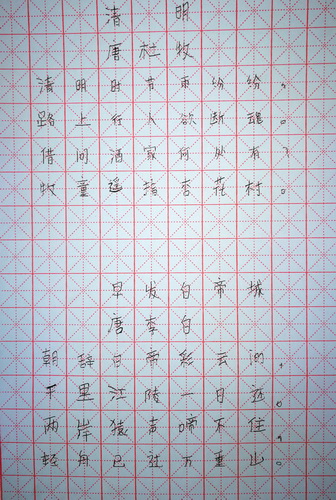 清明
唐 杜牧
清明时节雨纷纷。
路上行人欲断魂。
借问酒家何处有?
牧童遥指杏花村。
早发白帝城
唐 李白
朝辞白帝彩云间,
千里江陵一日还。
两岸猿声啼不住,
轻舟已过万重山。